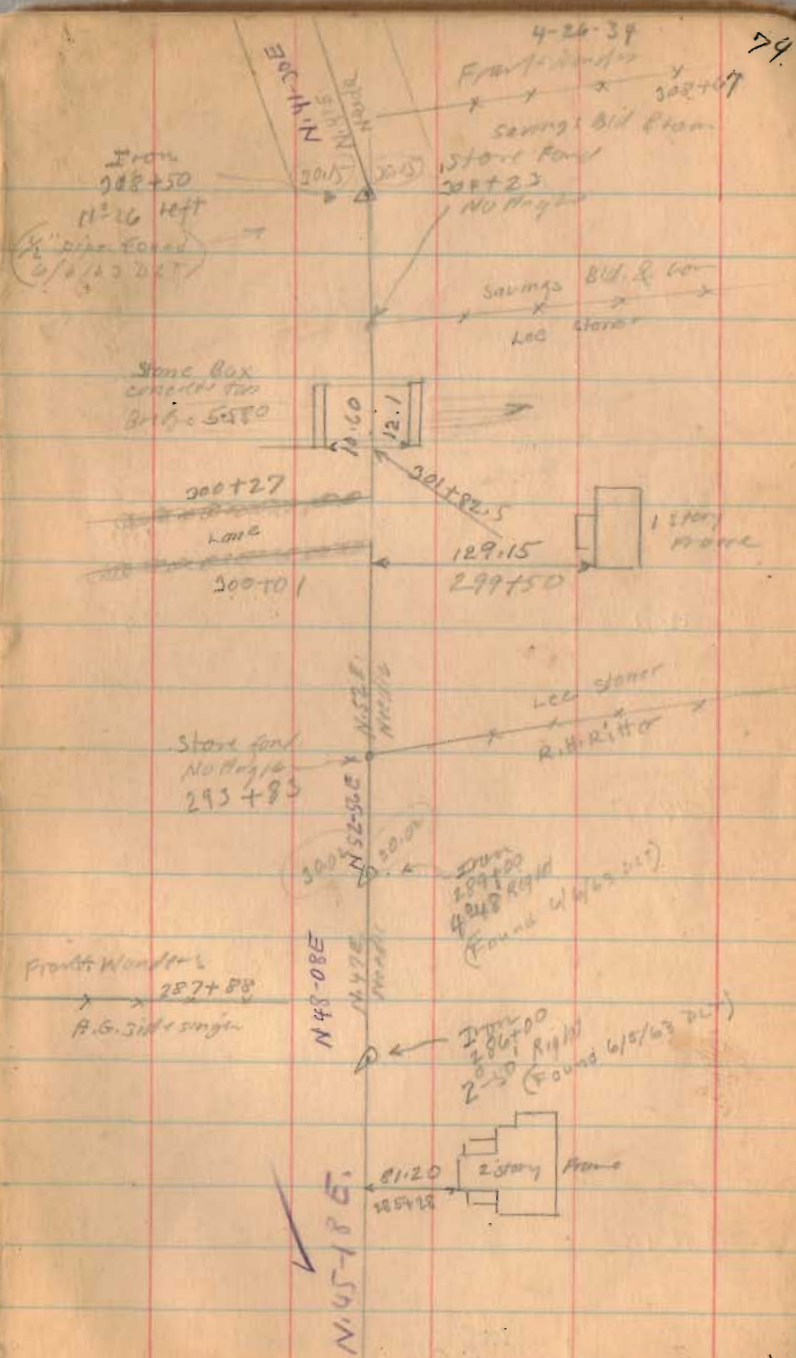 4-26-39
79.
Frank Wonders
308+67
Savings Bld & Loan
N.41-30E
N.41E
Needle
Iron
308+50
11°-26 Left
(1/2" pipe Found
6/6/63 DLT)
30.15
30.15
Stone Fond
304+23
No Angle
Savings Bld. & Loan
Lee Stoner
Stone Box
concrete top
5.50
10.60
12.1
301+82.5
300+27
Lane
300+01
129.15
299+50
1 story
Frame
N.52E.
Needle
Lee Stoner
R.H. Ritter
Stone fond
No Angle
293+83
N52-56E
30.02
30.02
Iron
289+00
4°48 Right
(Found 6/6/63 DLT)
N48-08E
N.47E
Needle
Frank Wonders
287+88
A.G. Sidesinger
Iron
286+00
2°-50' Right
(Found 6/5/63 DLT)
81.20
285+28
2 story Frame
N.45-18 E.